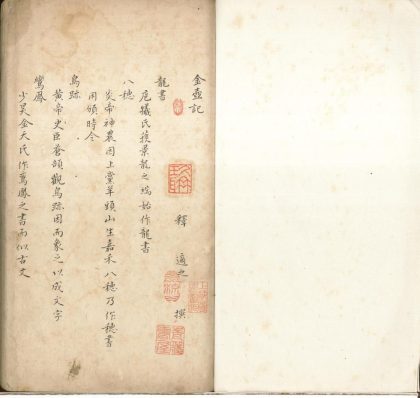 金壺記
釋 適之 撰
龍書
庖犧氏獲景龍之瑞始作龍書
八穗
炎帝神農因上黨羊頭山生嘉禾八穗乃作穗書
用頒時令
鳥跡
黃帝史臣蒼頡觀鳥跡因而象之以成文字
鸞鳳
少昊金天氏作鸞鳳之書而似古文